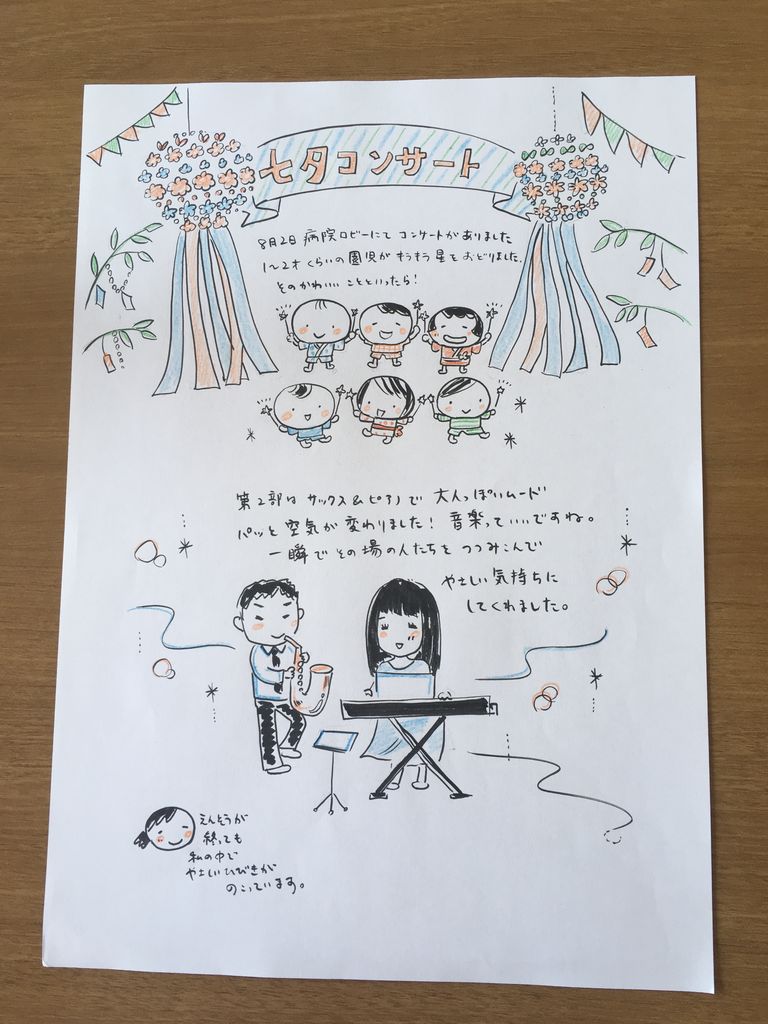 七夕コンサート
8月2日 病院ロビーにて コンサートがありました
1〜2才くらいの園児がキラキラ星をおどりました。
そのかわいいことといったら!
第2部は サックス&ピアノで 大人っぽいムード
パッと空気が変わりました! 音楽っていいですね。
一瞬でその場の人たちをつつみこんで
やさしい気持ちに
してくれました。
えんそうが
終っても
私の中で
やさしいひびきが
のこっています。